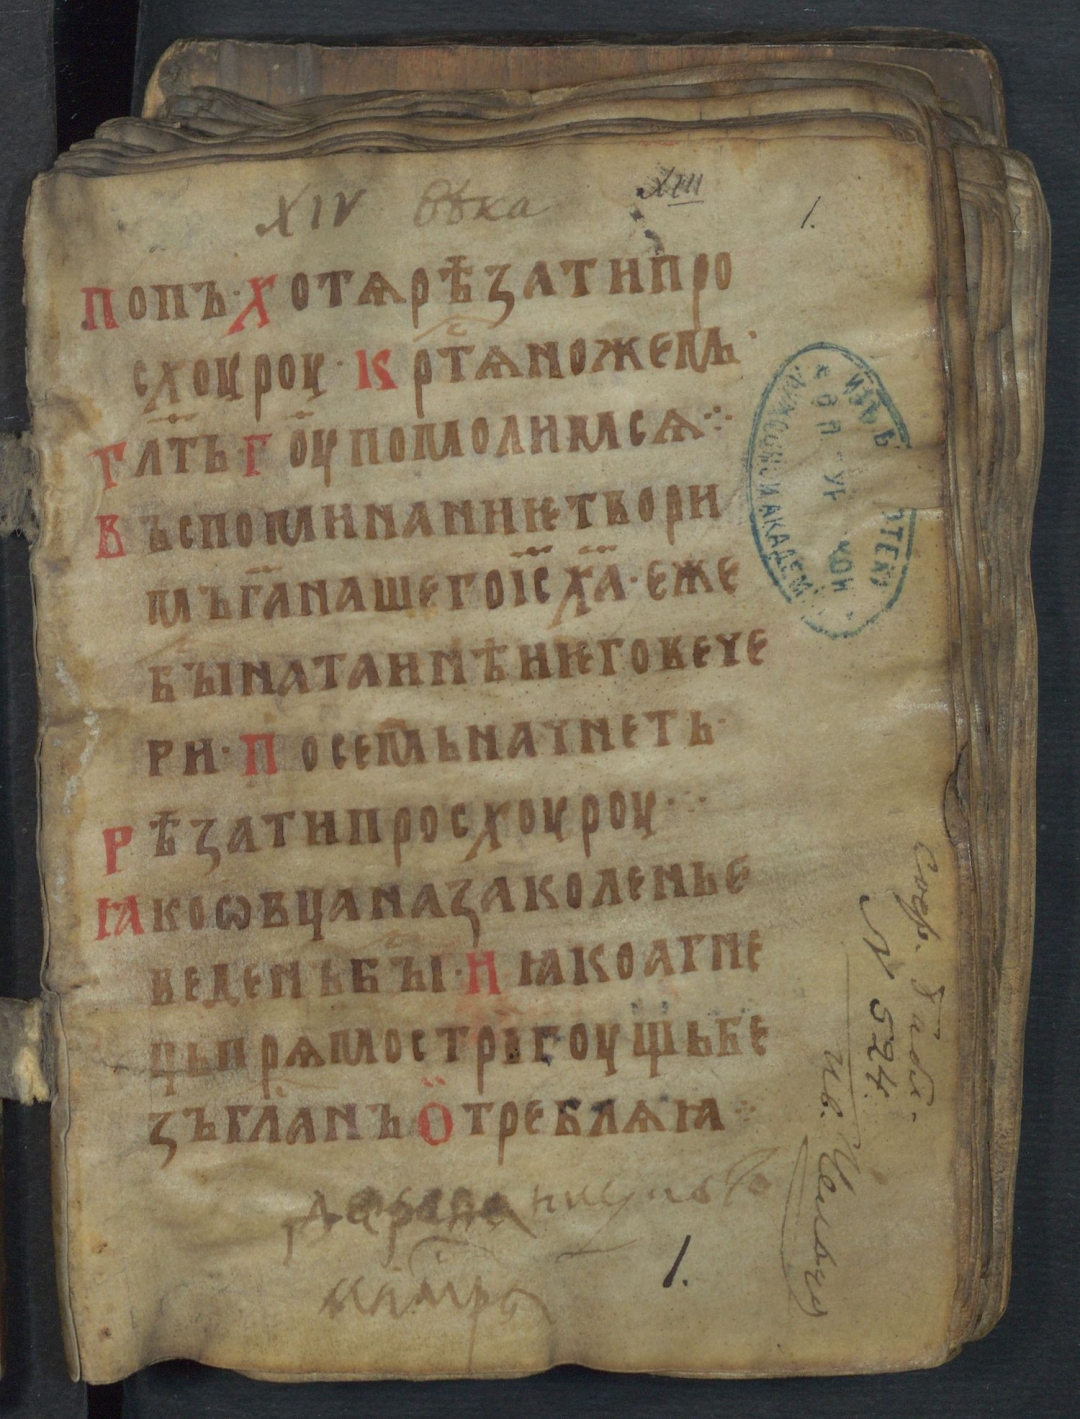 XIV вѣка
XIII
1.
Попъ · Хотѧ рѣзати про
схоуроу · Крⷭтѧ ножемь ·
Гл҃ть Г҃оу помолимсѧ ⁘
Въспоминаниѥ твори
мъ г҃а нашего і҃с х҃а · еже
бы на таинѣ ѥго вече
ри · Посемь начнеть ·
Рѣзати просхоуроу · ⁘
Ꙗко ѡвца на заколенье
веденъ бы · И ꙗко агне
ць прѧмо стрігоущь бе
зъ гл҃анъ Отреблѧꙗ ⁘
1.
Соф. библ.
N 524.